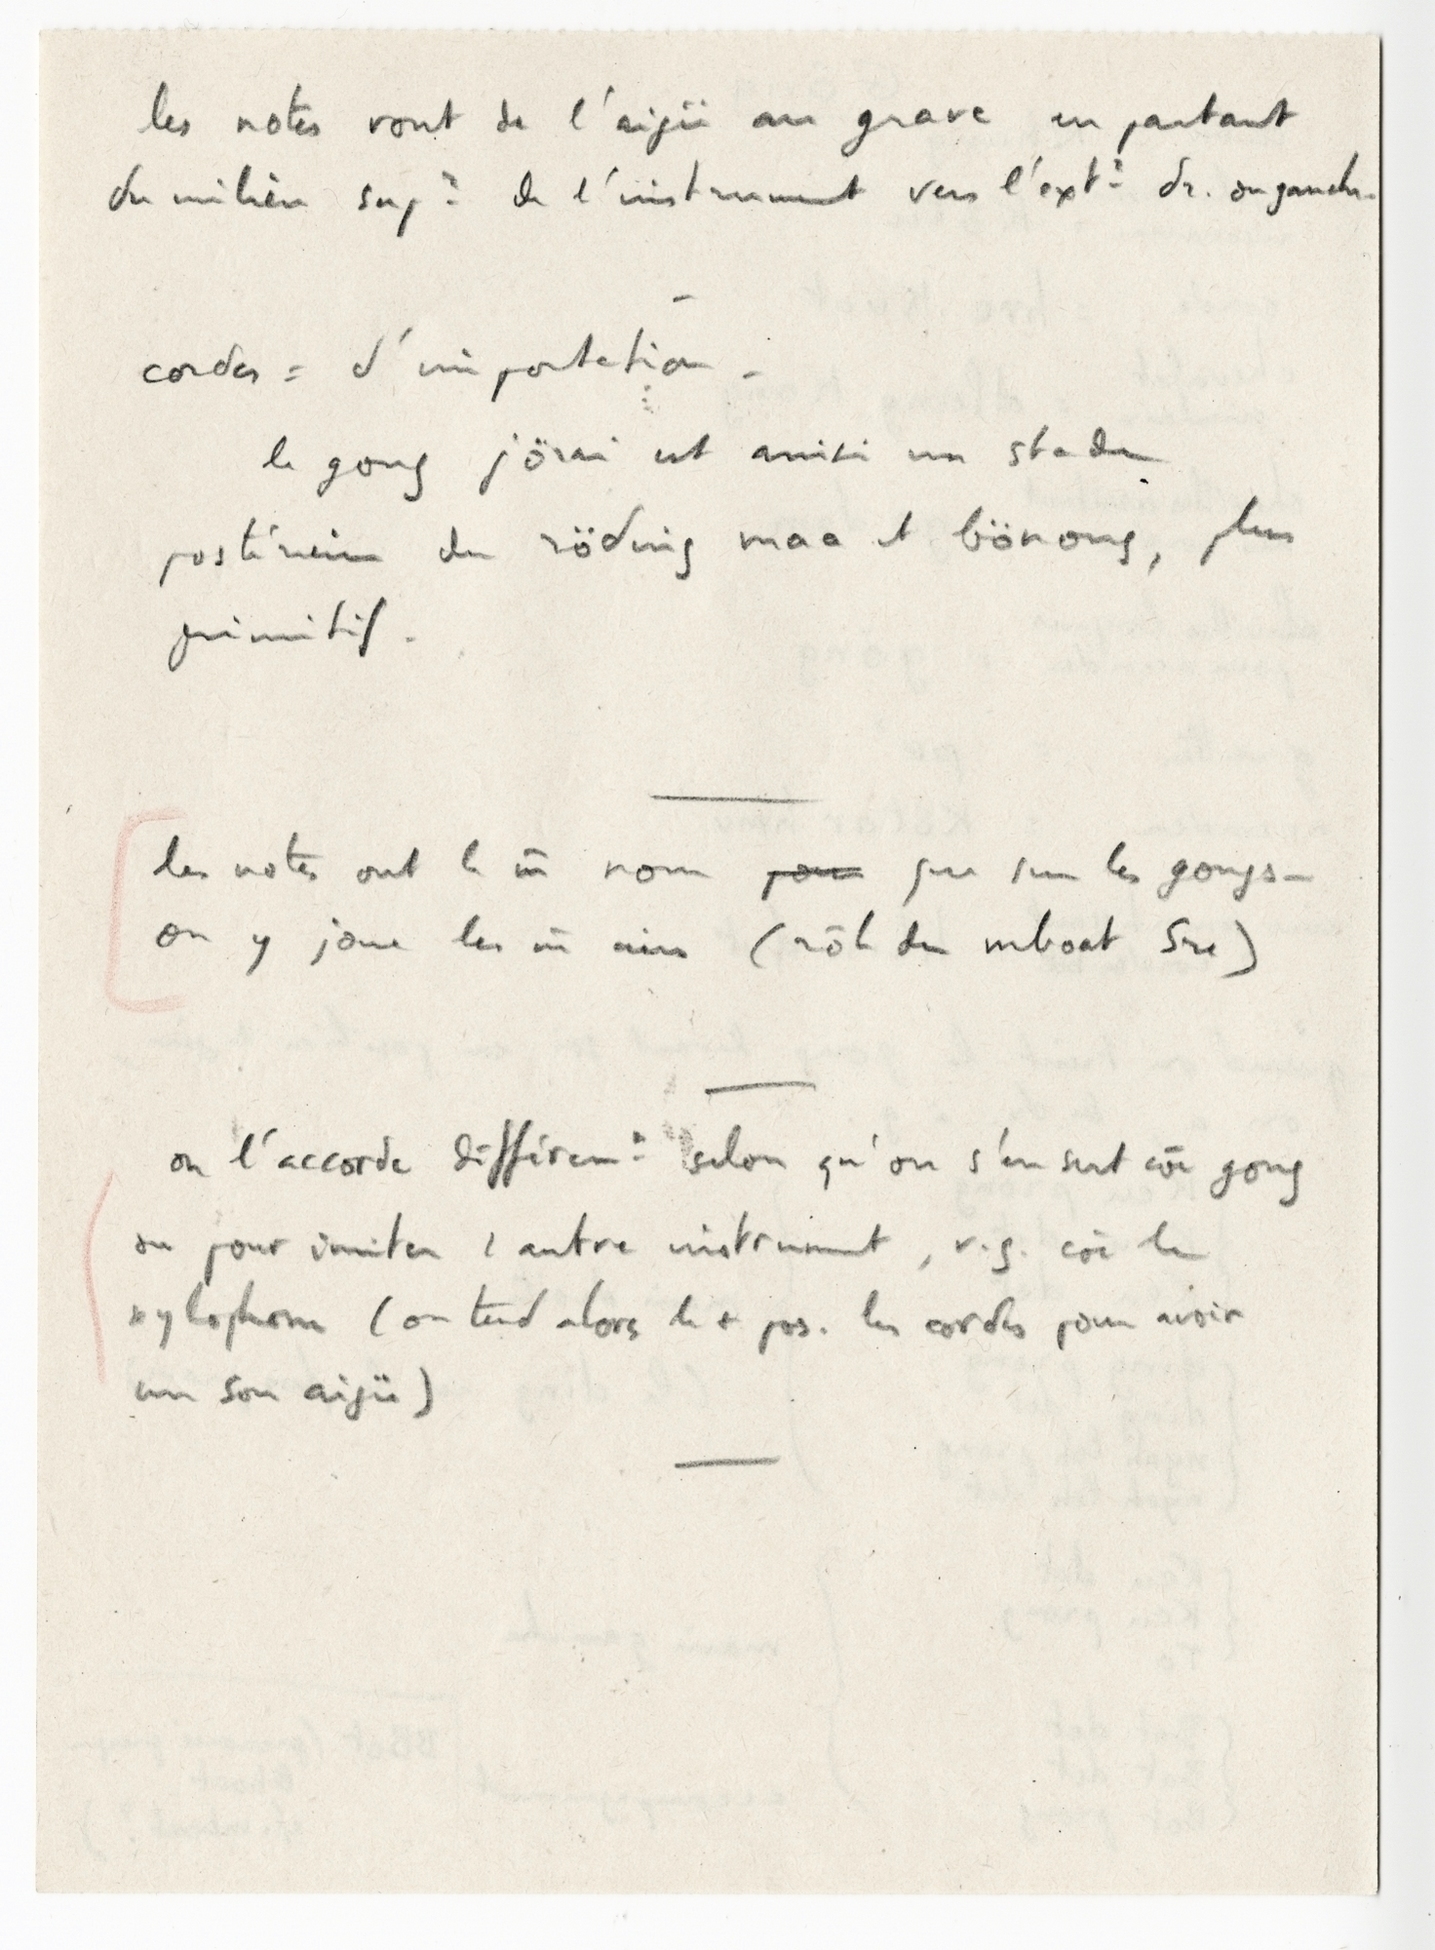 les notes vont de l'aigü au grave en partant
du milieu sup.r de l'instrument vers l'ext.r dr. ou gauche.
cordes = d'importation -
le gong jörai est ainsi un stade
postérieur du röding maa et bönong, plus
primitif.
les notes ont le m̄ nom pour que sur les gongs -
on y joue les m̄ airs (rôle du mboat Sre)
on l'accorde différem.t selon qu'on s'en sert cōe gong
ou pour imiter 1 autre instrument, v.g. cōe le
xylophone (on tend alors le + pos. les cordes pour avoir
un son aigü)